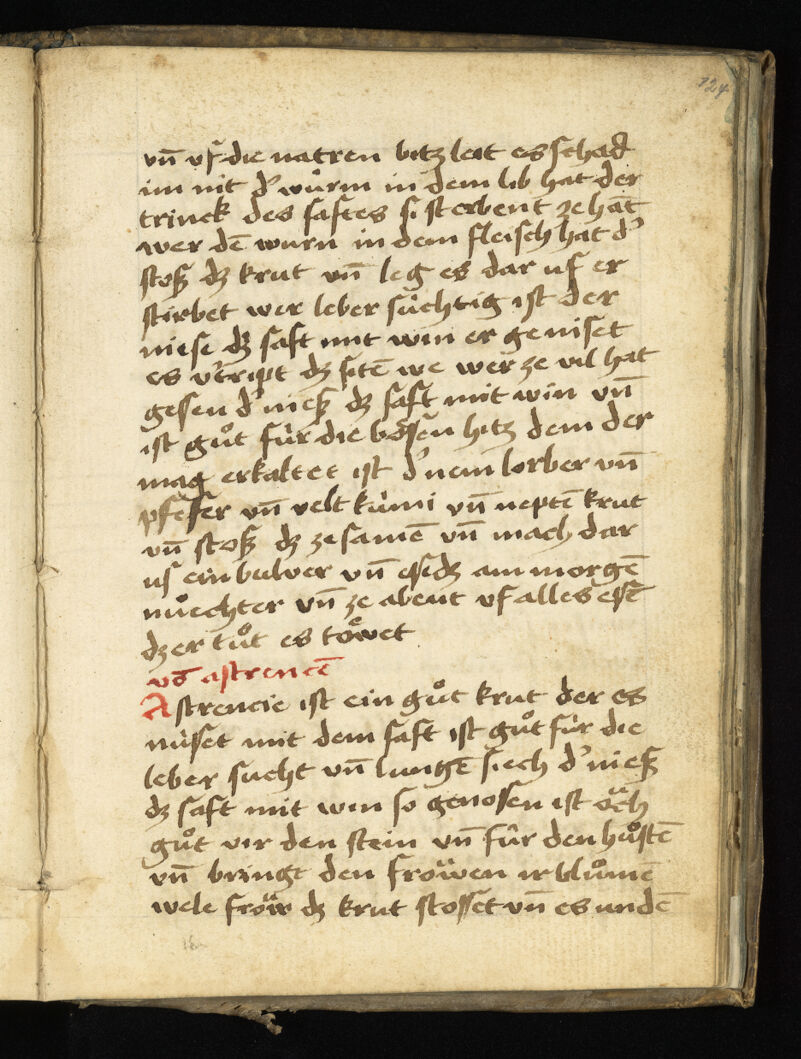 124
vn̄ vf die natren bitz leit es schad
im nit d' wuͤrm in dem lib hat der
trinck des saftes si sterbent ze hāt
wer dē wurn in dem fleisch hat d'
stoß dz krut vn̄ leg es dar uf er
stirbet wer leber suͤchtig ist der
niese dz saft mit win er geniset
es v'tript dz sitē we wer ze vil hat
gesen d' nieß dz saft mit win vn̄
ist guͦt fuͤr die boͤsen hitz dem der
mag erkaltet ist d' nem lorber vn̄
pfefer vn̄ velt kuͤmi vn̄ neptē krut
vn̄ stoß dz ze samē vn̄ mach dar
us ein bulver vn̄ esedz am morgē
nuͤechter vn̄ ze abent vf alles esē
dz er tuͦt es toͤwet
vō astrencē
Astrencie ist ein guͦt krut der es
nuͤset mit dem saft ist guͦt fuͤr die
leber sucht vn̄ lungē siech d' nieß
dz saft mit win so genosen ist oͤch
guͦt vir den stein vn̄ fuͤr den huͦstē
vn̄ bringt den froͤwen ir bluͦmē
wele froͤw dz krut stosset vn̄ es undē